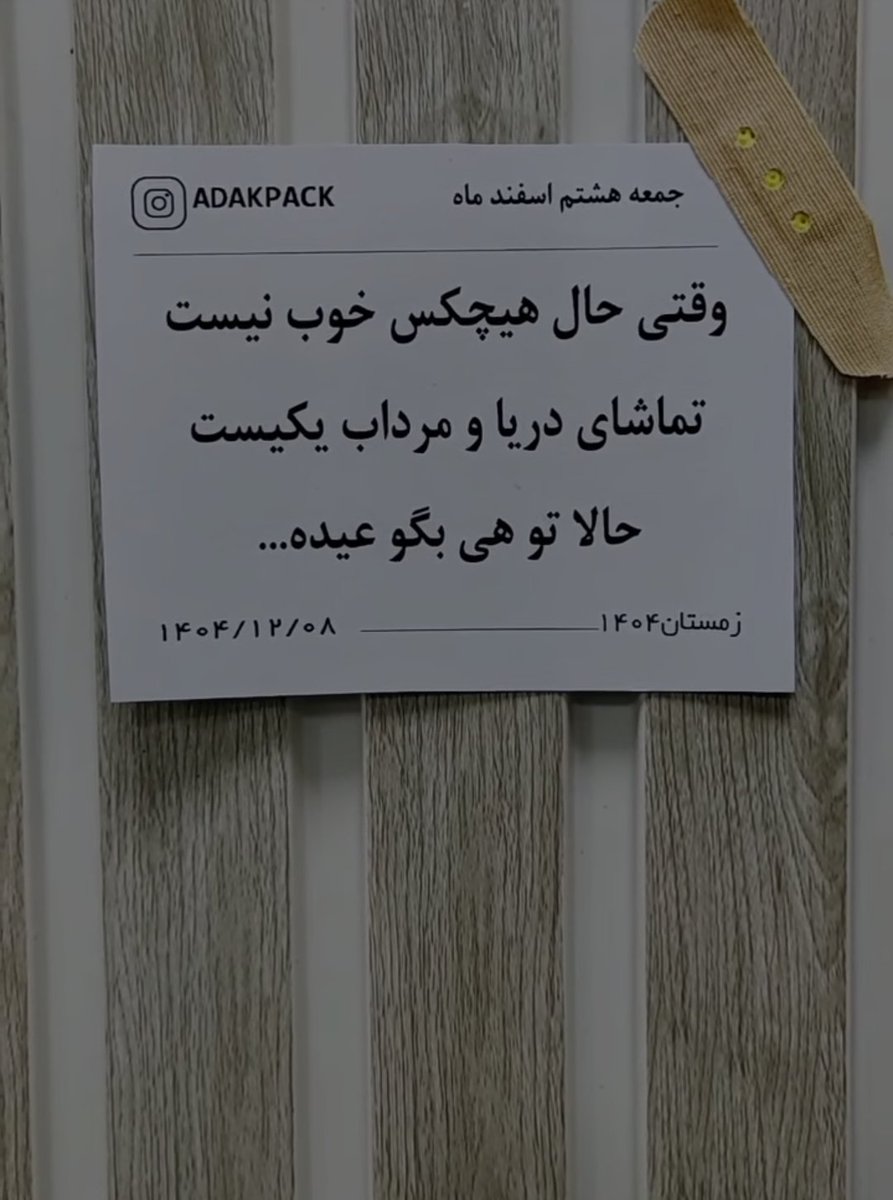 جمعه هشتم اسفند ماه ADAKPACK
وقتی حال هیچکس خوب نیست
تماشای دریا و مرداب یکیست
حالا تو هی بگو عیده...
زمستان۱۴۰۴ ۱۴۰۴/۱۲/۰۸